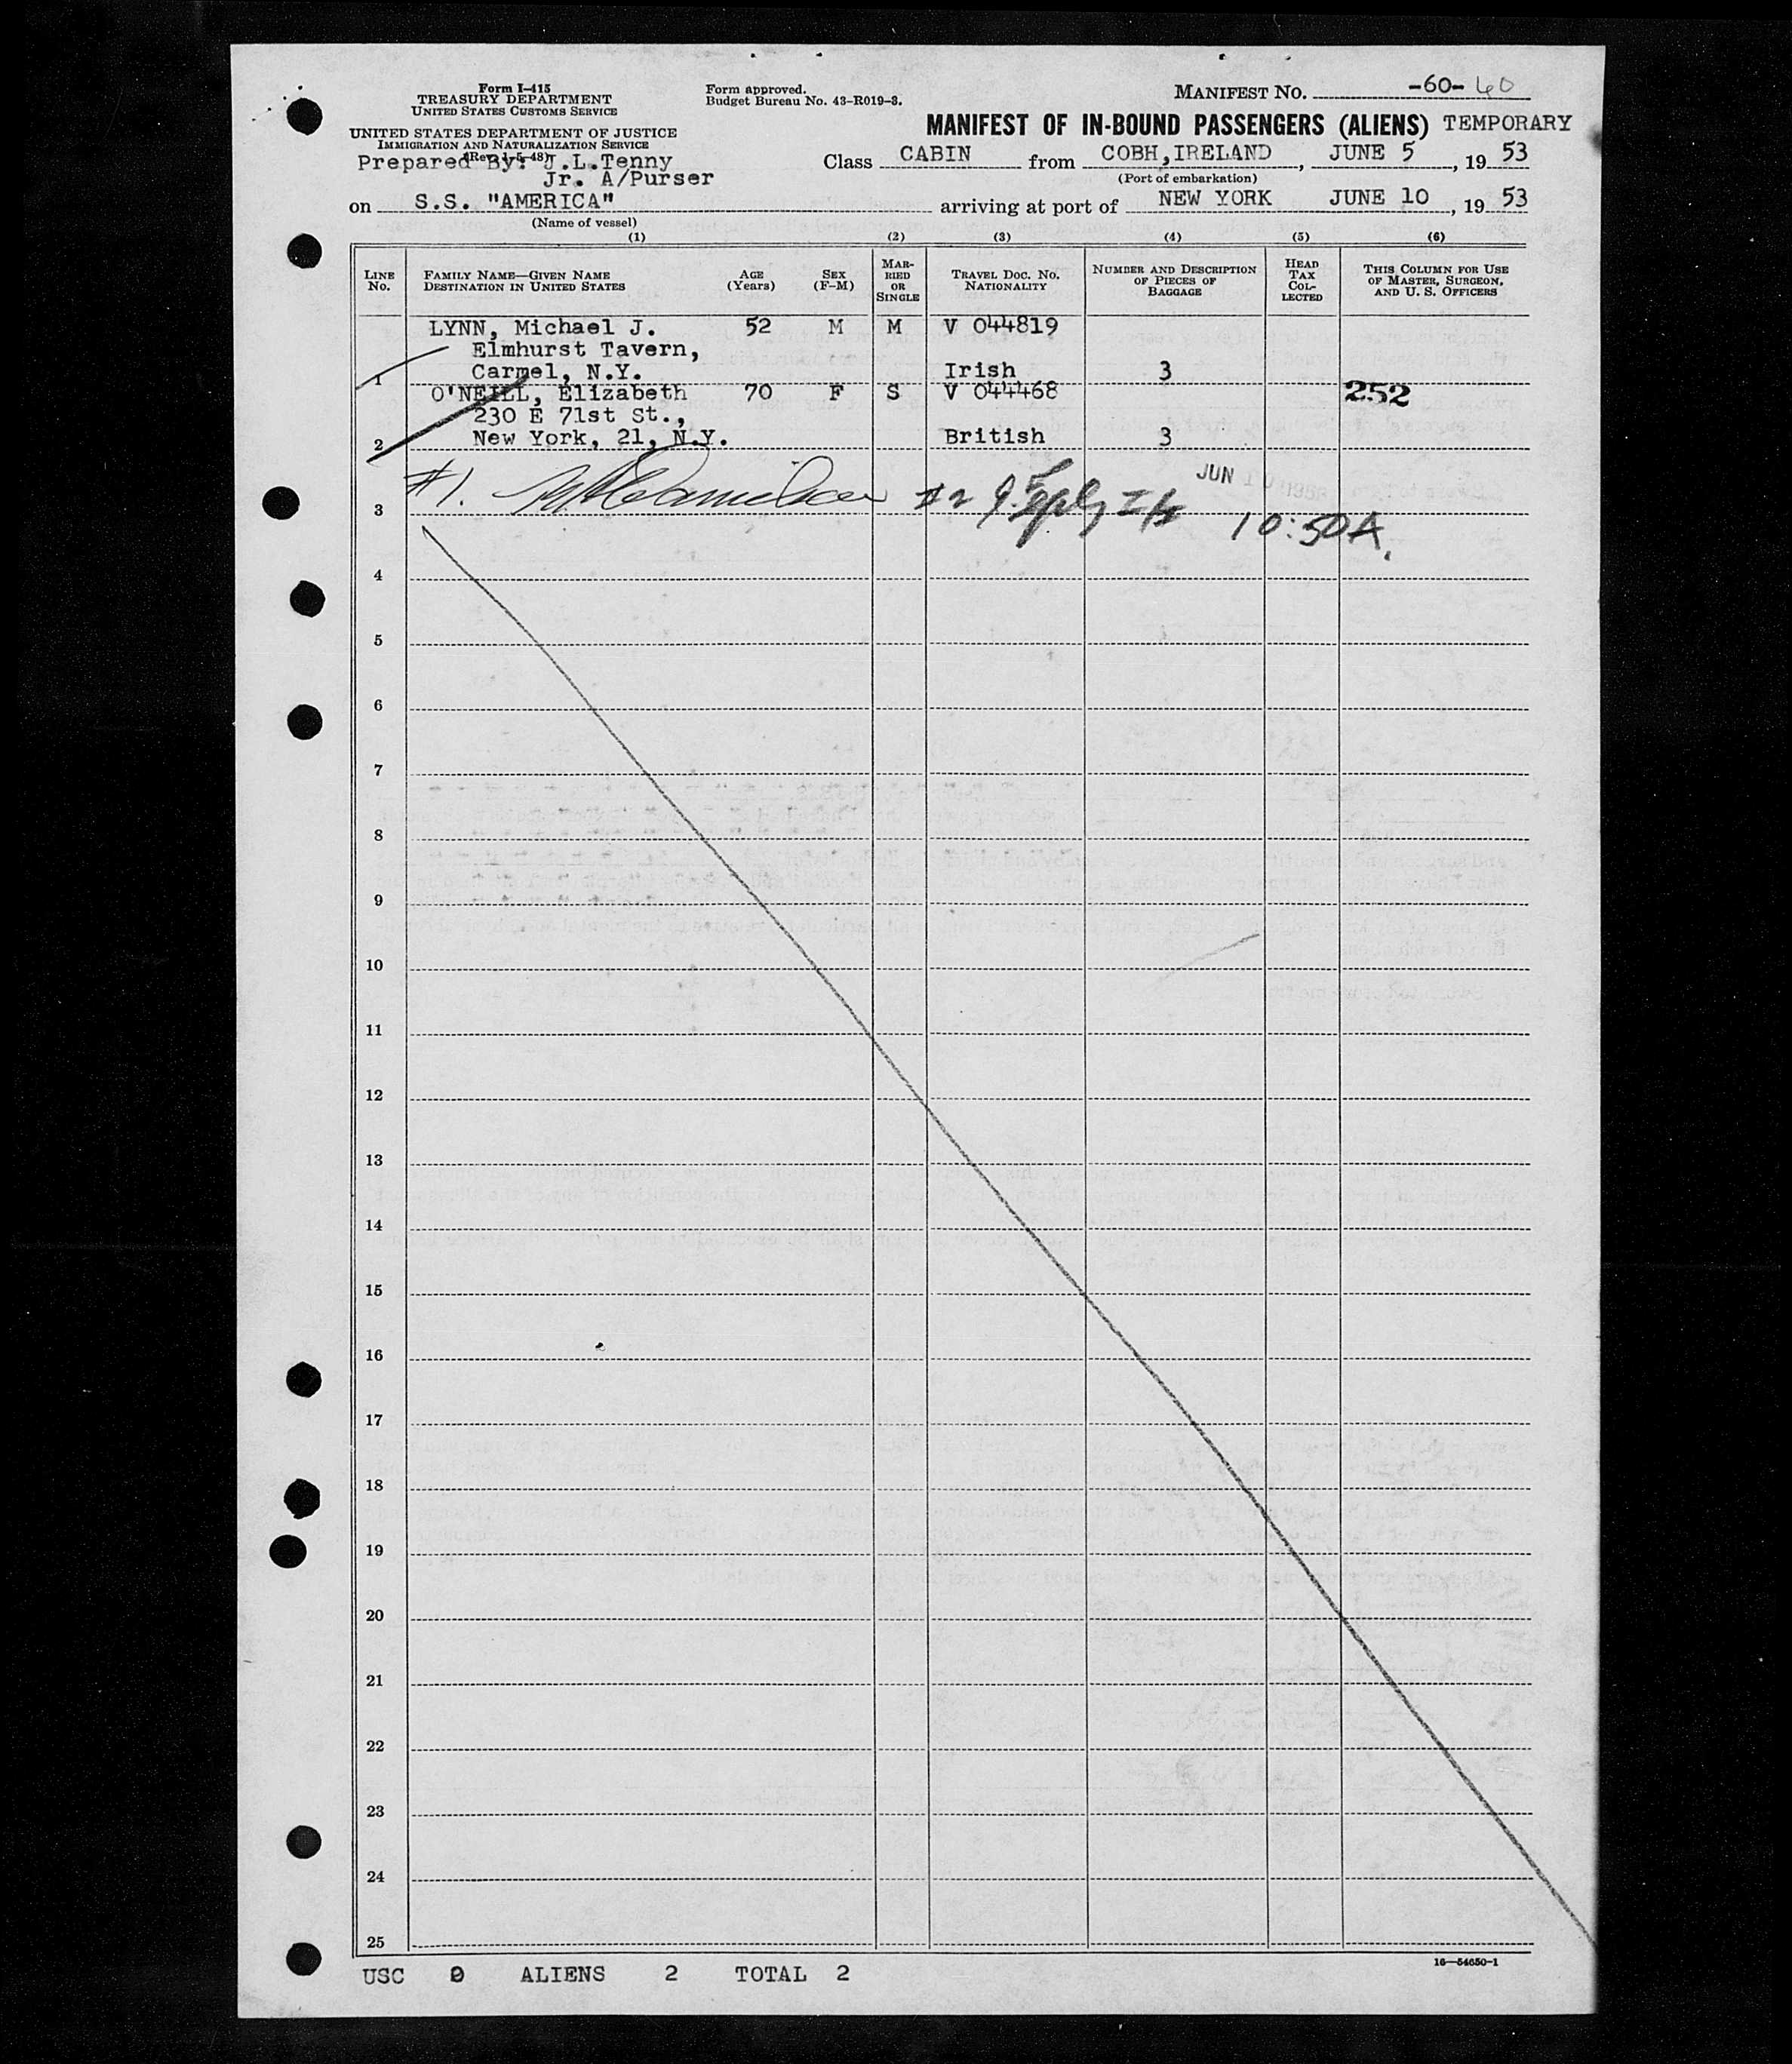 Form I-415
TREASURY DEPARTMENT
UNITED STATES CUSTOMS SERVICE
UNITED STATES DEPARTMENT OF JUSTICE
IMMIGRATION AND NATURALIZATION SERVICE
(Rev. 1-5-48)
Prepared By: J.L.Tenny
Jr. A/Purser
Form approved.
Budget Bureau No. 43-R019-3.
MANIFEST NO. -60- 60
MANIFEST OF IN-BOUND PASSENGERS (ALIENS) TEMPORARY
Class CABIN from COBH,IRELAND, JUNE 5, 19 53
(Port of embarkation)
on S.S. "AMERICA" arriving at port of NEW YORK JUNE 10, 19 53
(Name of vessel)
(1) (2) (3) (4) (5) (6)
LINE No.
FAMILY NAME—GIVEN NAME
DESTINATION IN UNITED STATES
AGE (Years)
SEX (F-M)
MARRIED OR SINGLE
TRAVEL DOC. NO. NATIONALITY
NUMBER AND DESCRIPTION OF PIECES OF BAGGAGE
HEAD TAX COLLECTED
THIS COLUMN FOR USE OF MASTER, SURGEON, AND U. S. OFFICERS
LYNN, Michael J. 52 M M V 044819
Elmhurst Tavern,
1 Carmel, N.Y. Irish 3
O'NEILL, Elizabeth 70 F S V 044468 252
230 E 71st St.,
2 New York, 21, N.Y. British 3
#1. #2 JUN
3 10:50A.
4
5
6
7
8
9
10
11
12
13
14
15
16
17
18
19
20
21
22
23
24
25
USC 0 ALIENS 2 TOTAL 2
16—54650-1